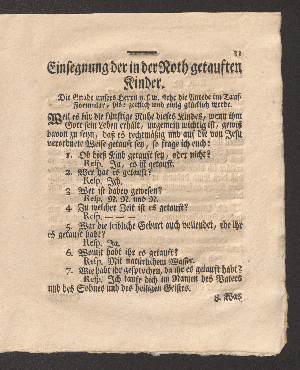 Einsegnung der in der Noth getauften
Kinder.
Die Gnade unsers Herrn u. s. w. siehe die Anrede im Tauf-
Formular, bis: zeitlich und ewig glücklich werde.
Weil es für die künftige Ruhe dieses Kindes, wenn ihm
Gott sein Leben erhält, ungemein wichtig ist, gewiß
davon zu seyn, daß es rechtmäßig und auf die von Jesu
verordnete Weise getauft sey, so frage ich euch:
1. Ob dieß Kind getauft sey, oder nicht?
Resp. Ja, es ist getauft.
2. Wer hat es getauft?
Resp. Ich.
3. Wer ist dabey gewesen?
Resp. N. N. und N.
4. Zu welcher Zeit ist es getauft?
Resp. — — —
5. War die leibliche Geburt auch vollendet, ehe ihr
es getauft habt?
Resp. Ja.
6. Womit habt ihr es getauft?
Resp. Mit natürlichem Wasser.
7. Wie habt ihr gesprochen, da ihr es getauft habt?
Resp. Ich taufe dich im Namen des Vaters
und des Sohnes und des heiligen Geistes.
8. Was